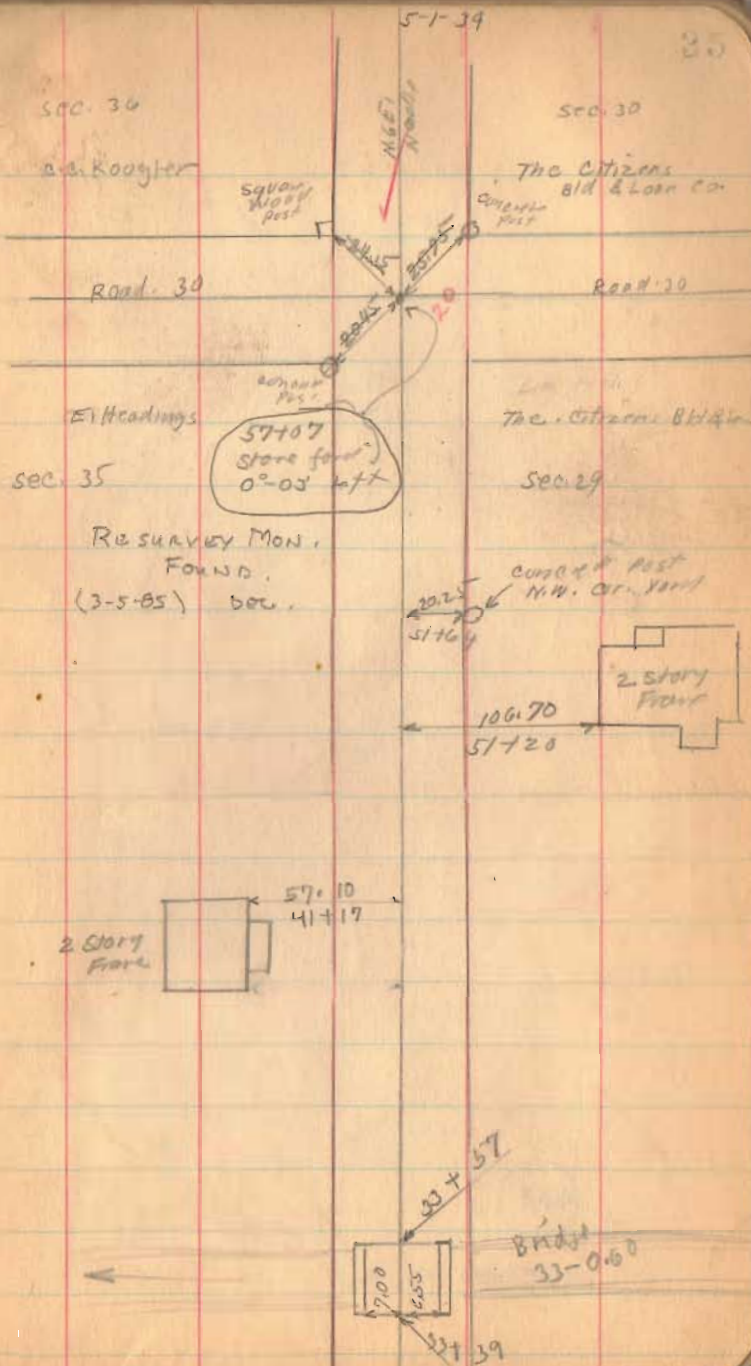 5-1-39
25
Sec. 36
Sec. 30
C.C. Koogler
The Citizens
Bld & Loan Co.
Square
Wood
Post
Concrete
Post
N6E1
Needle
24.15
25.75
Road. 30
Road. 30
20
20.45
Concrete
Post
E. Headings
The Citizens Bld &
57+07
Stone found
0°-03' Left
Sec. 35
Sec. 29
RESURVEY MON.
FOUND.
(3-5-85)
20.25
51+64
Concrete Post
N.W. Cor. Yard
2 Story
Frame
106.70
51+20
57.10
41+17
2 Story
Frame
33+57
Bridge
33-0.60
7.00
6.55
33+39